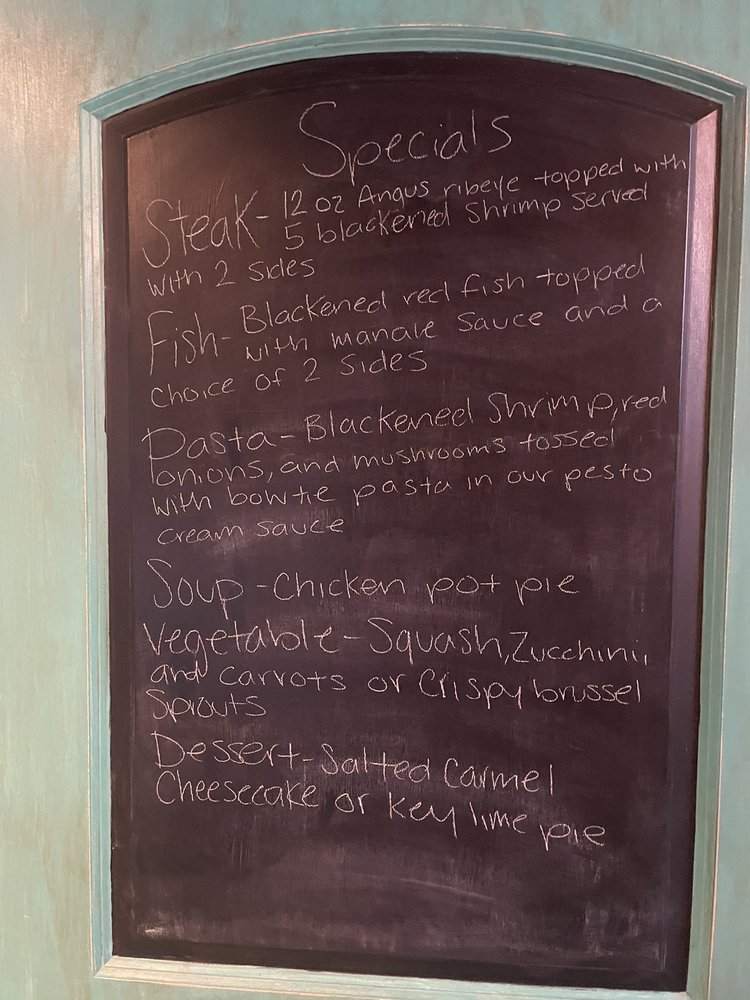 Specials
Steak - 12 oz Angus ribeye topped with
5 blackened Shrimp Served
with 2 sides
Fish - Blackened red fish topped
with manale sauce and a
choice of 2 sides
Pasta - Blackened Shrimp, red
onions, and mushrooms tossed
with bowtie pasta in our pesto
cream sauce
Soup - Chicken pot pie
Vegetable - Squash, Zucchini,
and carrots or Crispy brussel
Sprouts
Dessert - Salted Carmel
Cheesecake or key lime pie